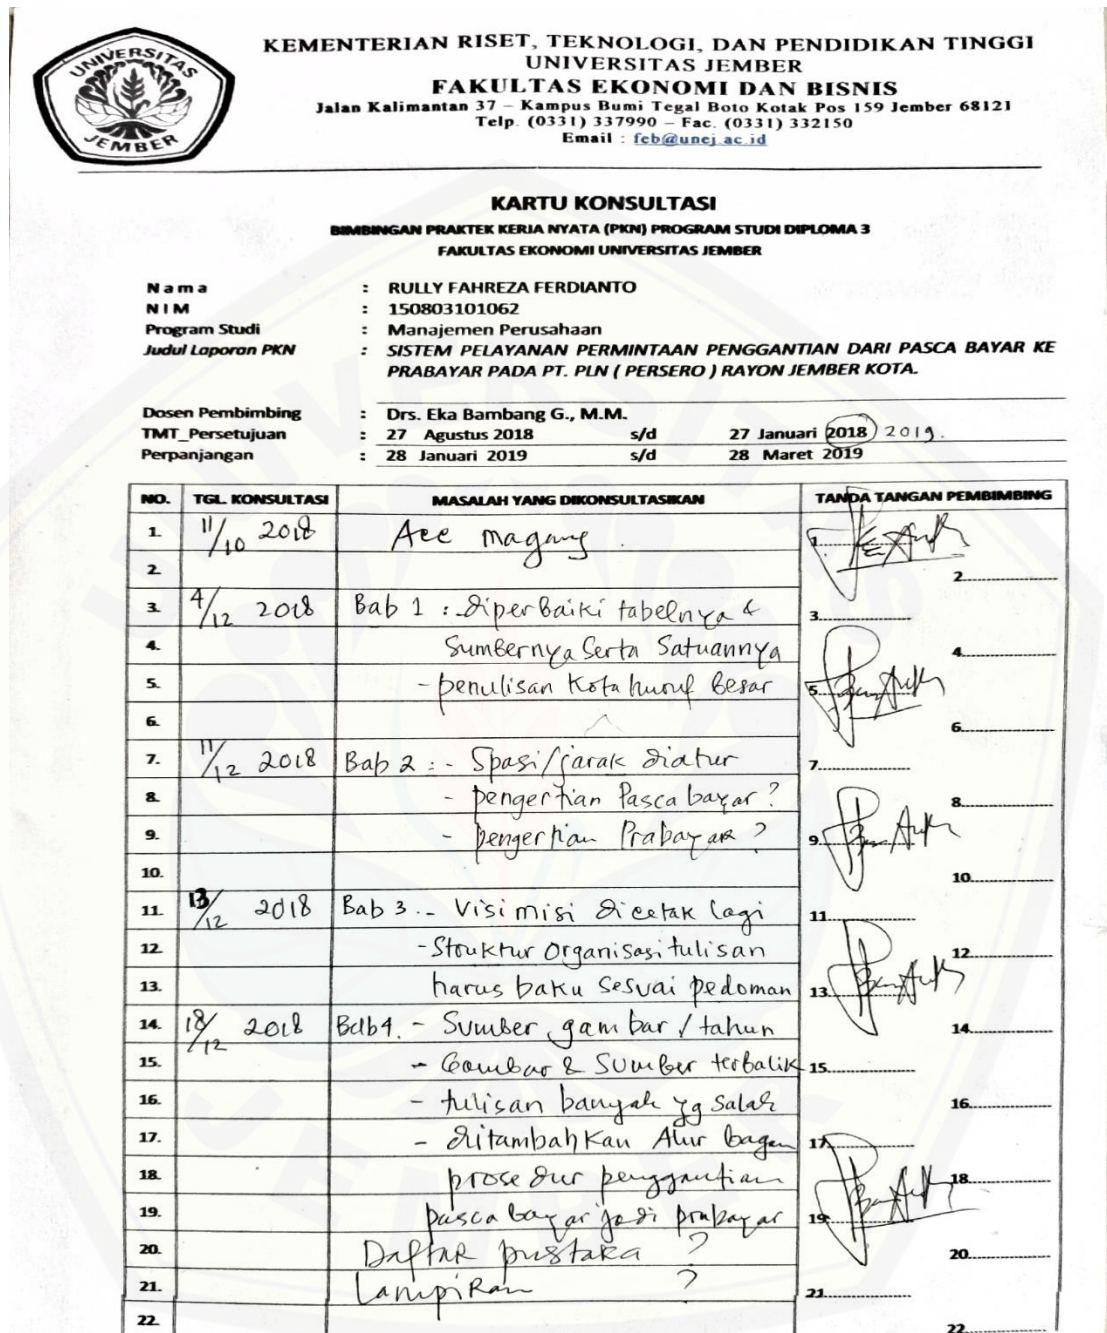 UNIVERSITAS
JEMBER
KEMENTERIAN RISET, TEKNOLOGI, DAN PENDIDIKAN TINGGI
UNIVERSITAS JEMBER
FAKULTAS EKONOMI DAN BISNIS
Jalan Kalimantan 37 – Kampus Bumi Tegal Boto Kotak Pos 159 Jember 68121
Telp. (0331) 337990 – Fac. (0331) 332150
Email : feb@unej.ac.id
KARTU KONSULTASI
BIMBINGAN PRAKTEK KERJA NYATA (PKN) PROGRAM STUDI DIPLOMA 3
FAKULTAS EKONOMI UNIVERSITAS JEMBER
Nama : RULLY FAHREZA FERDIANTO
NIM : 150803101062
Program Studi : Manajemen Perusahaan
Judul Laporan PKN : SISTEM PELAYANAN PERMINTAAN PENGGANTIAN DARI PASCA BAYAR KE
PRABAYAR PADA PT. PLN ( PERSERO ) RAYON JEMBER KOTA.
Dosen Pembimbing : Drs. Eka Bambang G., M.M.
TMT_Persetujuan : 27 Agustus 2018 s/d 27 Januari 2018 2019.
Perpanjangan : 28 Januari 2019 s/d 28 Maret 2019
NO. TGL. KONSULTASI MASALAH YANG DIKONSULTASIKAN TANDA TANGAN PEMBIMBING
1. 11/10 2018 Acc magang 1
2. 2
3. 4/12 2018 Bab 1 : diperbaiki tabelnya & 3
4. Sumbernya Serta Satuannya 4
5. - penulisan Kota huruf Besar 5
6. 6
7. 11/12 2018 Bab 2 : - Spasi/jarak diatur 7
8. - pengertian Pasca bayar ? 8
9. - pengertian Prabayar ? 9
10. 10
11. 13/12 2018 Bab 3 .- Visi misi dicetak lagi 11
12. - Struktur Organisasi tulisan 12
13. harus baku sesuai pedoman 13
14. 18/12 2018 Bab 4. - Sumber, gambar / tahun 14
15. - Gambar & Sumber terbalik 15
16. - tulisan banyak yg salah 16
17. - ditambahkan Alur bagan 17
18. prosedur penggantian 18
19. pasca bayar jadi prabayar 19
20. Daftar pustaka ? 20
21. Lampiran ? 21
22. 22